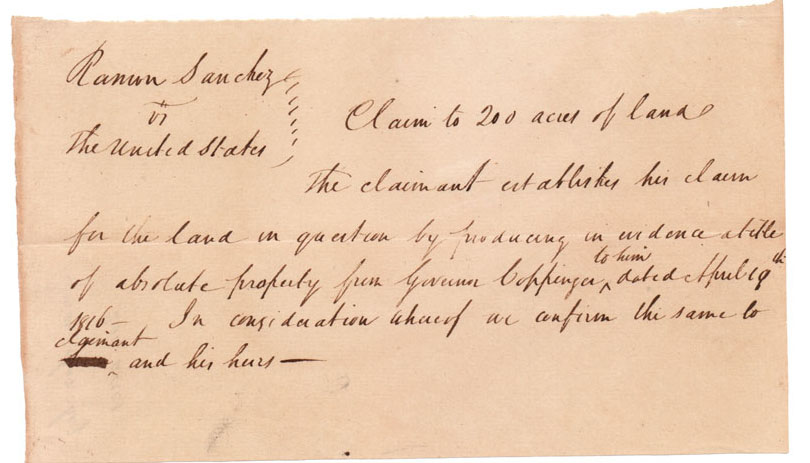 Ramon Sanchez
vs
The United States
Claim to 200 acres of land
The claimant establishes his claim
for the land in question by producing in evidence a title
of absolute property from Governor Coppinger, to him dated April 19th
1816 — In consideration whereof we confirm the same to
claimant and his heirs —